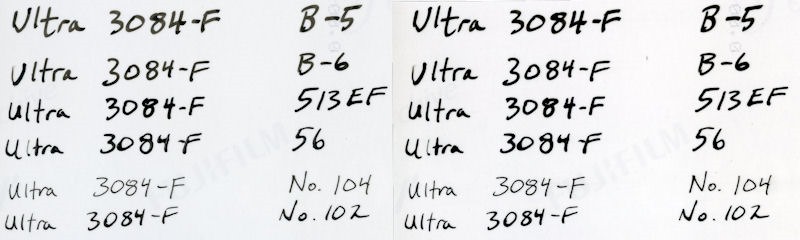 Ultra 3084-F B-5 Ultra 3084-F B-5
Ultra 3084-F B-6 Ultra 3084-F B-6
Ultra 3084-F 513EF Ultra 3084-F 513EF
Ultra 3084-F 56 Ultra 3084-F 56
Ultra 3084-F No. 104 Ultra 3084-F No. 104
Ultra 3084-F No. 102 Ultra 3084-F No. 102
FUJIFILM